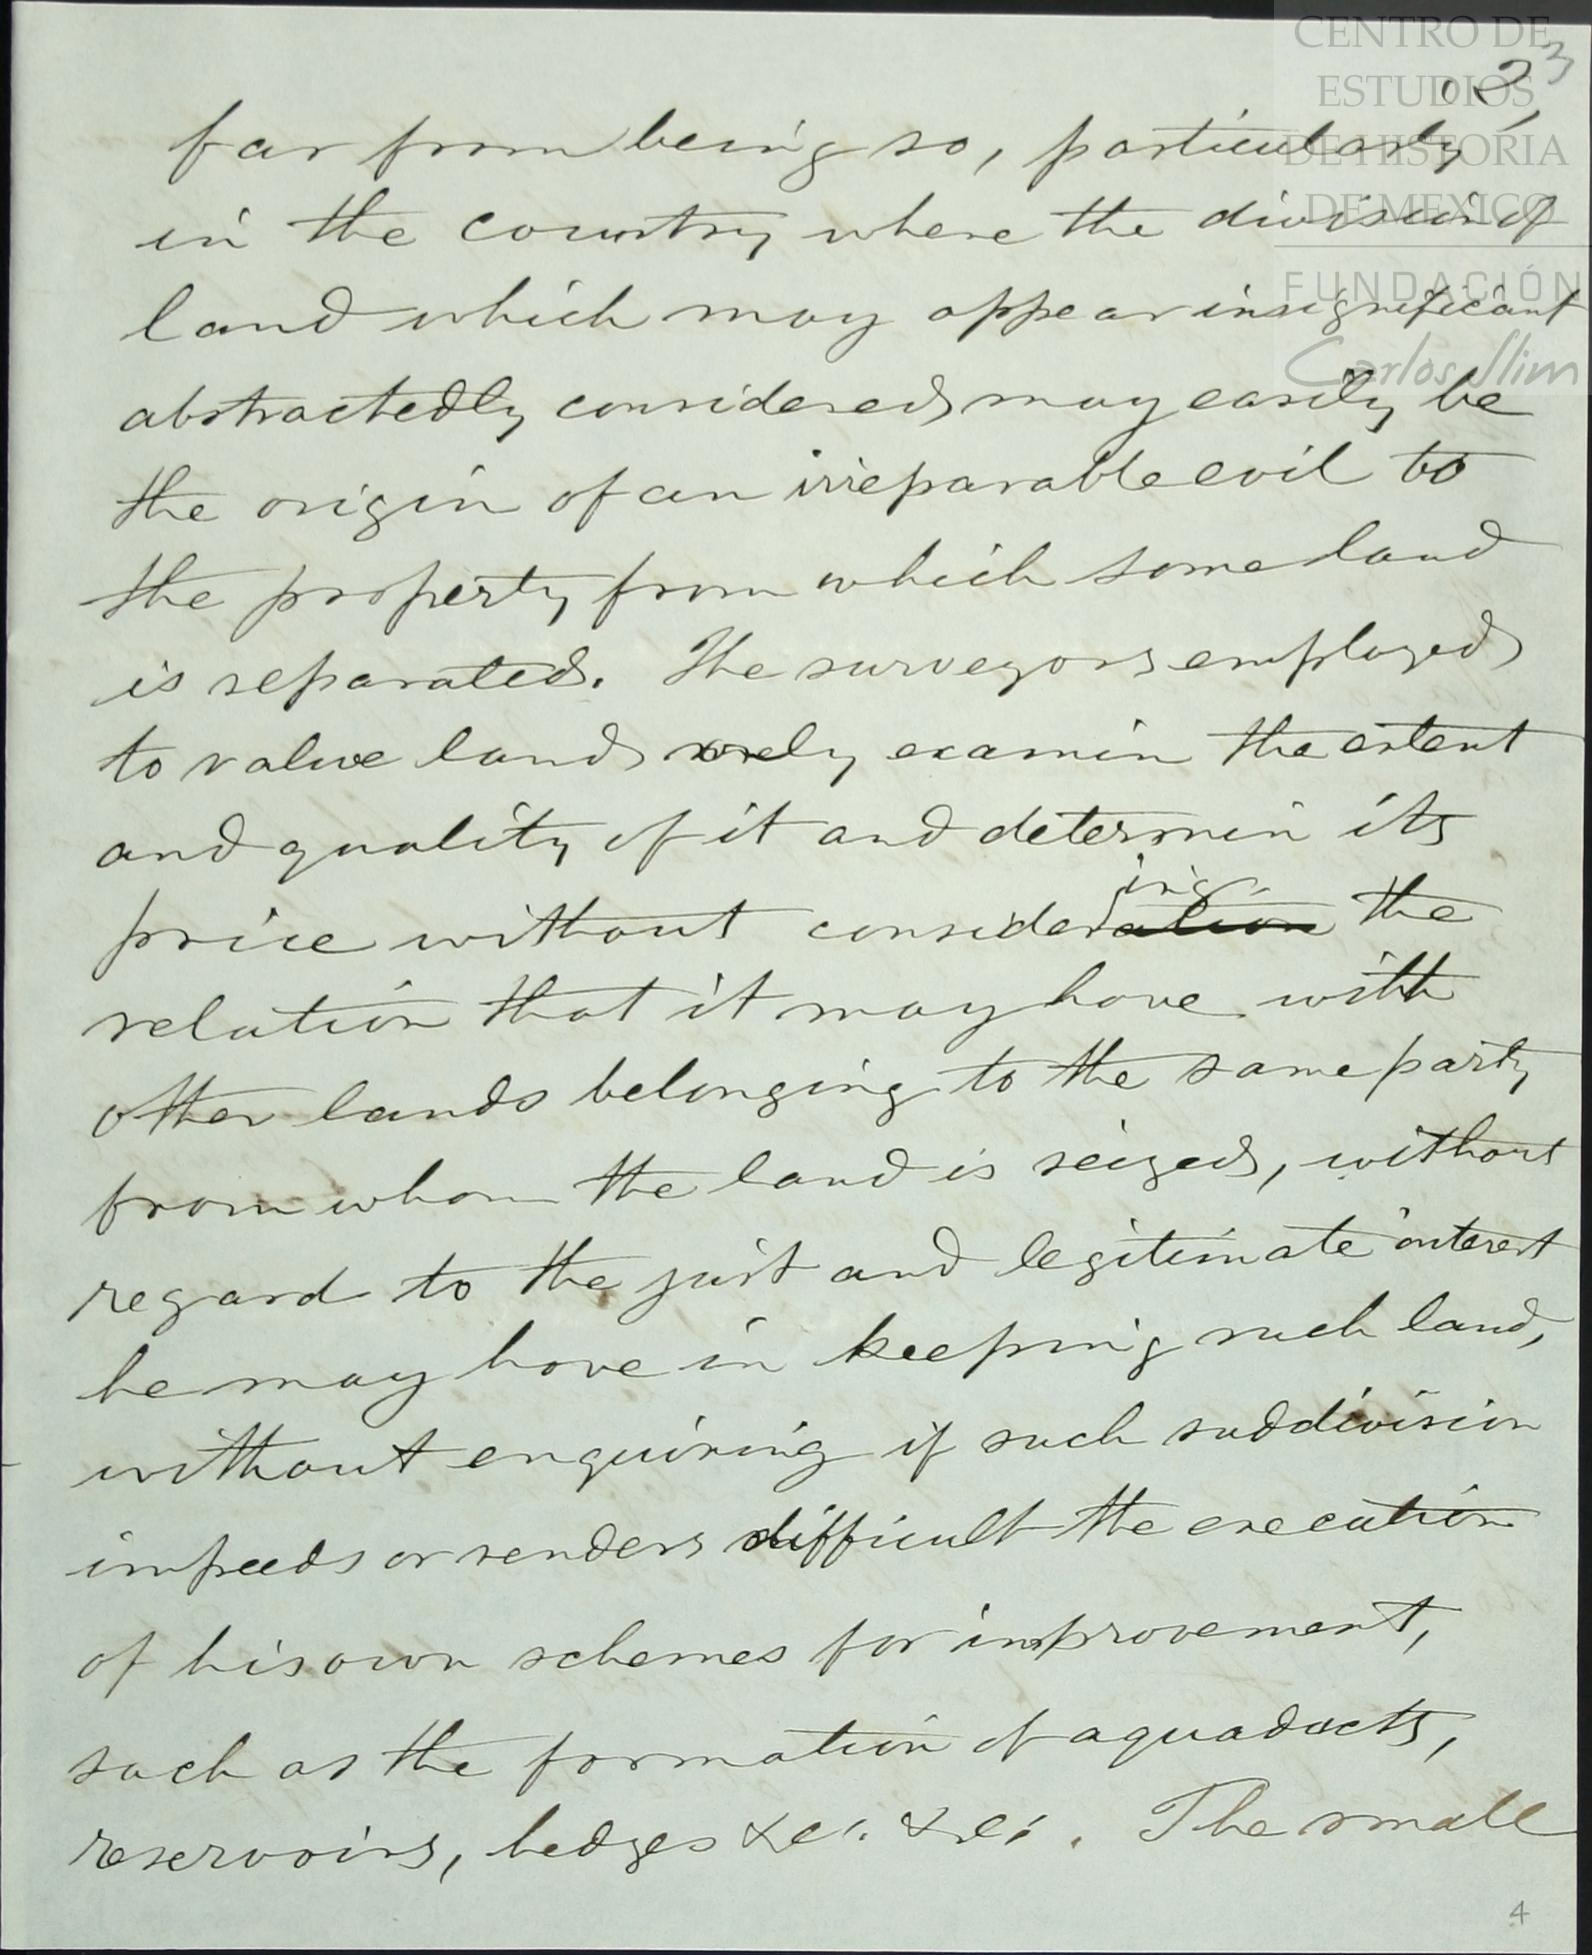 CENTRO DE
ESTUDIOS
DE HISTORIA
DE MEXICO
FUNDACIÓN
Carlos Slim
23
far from being so, particularly
in the country where the division of
land which may appear insignificant
abstractedly considered may easily be
the origin of an irreparable evil to
the property from which some land
is separated. The surveyors employed
to value land only examin the extent
and quality of it and determin its
price without consideration ing the
relation that it may have with
other lands belonging to the same party
from whom the land is seized, without
regard to the just and legitimate interest
he may have in keeping such land,
without enquiring if such suddivision
impeeds or renders difficult the execution
of his own schemes for improvement,
such as the formation of aquaducts,
reservoirs, hedges &c. &c. The small
4